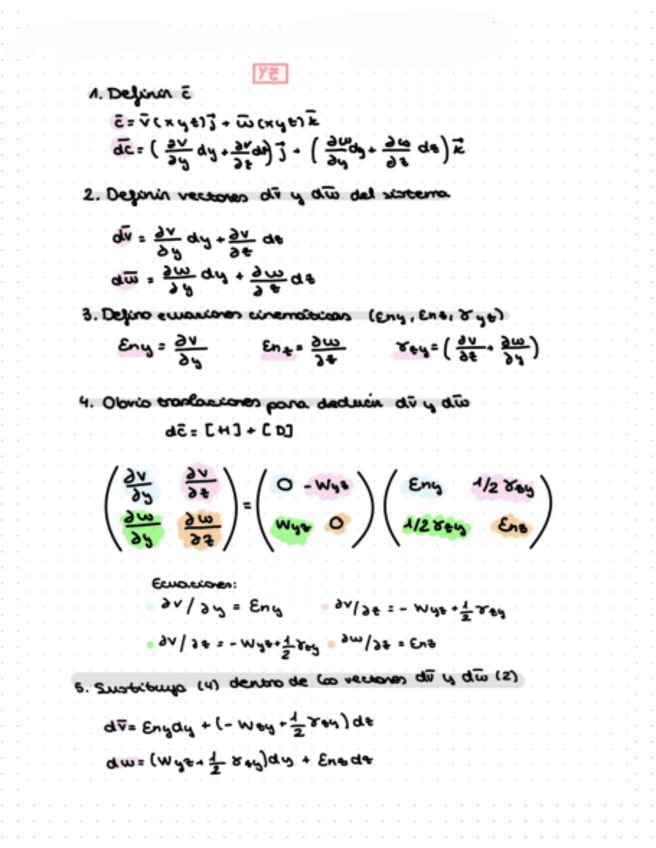 YZ
1. Definir c̄
c̄ = v̄(xyz)j⃗ + w̄(xyz)k⃗
dc̄ = (∂v/∂y dy + ∂v/∂z dz) j⃗ + (∂w/∂y dy + ∂w/∂z dz) k⃗
2. Definir vectores dv̄ y dw̄ del sistema
dv̄ = ∂v/∂y dy + ∂v/∂z dz
dw̄ = ∂w/∂y dy + ∂w/∂z dz
3. Defino ecuaciones cinemáticas (Eny, Enz, γyz)
Eny = ∂v/∂y Enz = ∂w/∂z γzy = (∂v/∂z + ∂w/∂y)
4. Obvio traslaciones para deducir dv̄ y dw̄
dc̄ = [H] + [D]
(∂v/∂y ∂v/∂z) = (0 -Wyz) (Eny 1/2 γzy)
(∂w/∂y ∂w/∂z) (Wyz 0) (1/2 γzy Enz)
Ecuaciones:
∂v/∂y = Eny ∂v/∂z = - Wyz + 1/2 γzy
∂v/∂z = - Wyz + 1/2 γzy ∂w/∂z = Enz
5. Sustituyo (4) dentro de los vectores dv̄ y dw̄ (2)
dv̄ = Eny dy + (- Wzy + 1/2 γzy) dz
dw = (Wyz + 1/2 γzy) dy + Enz dz